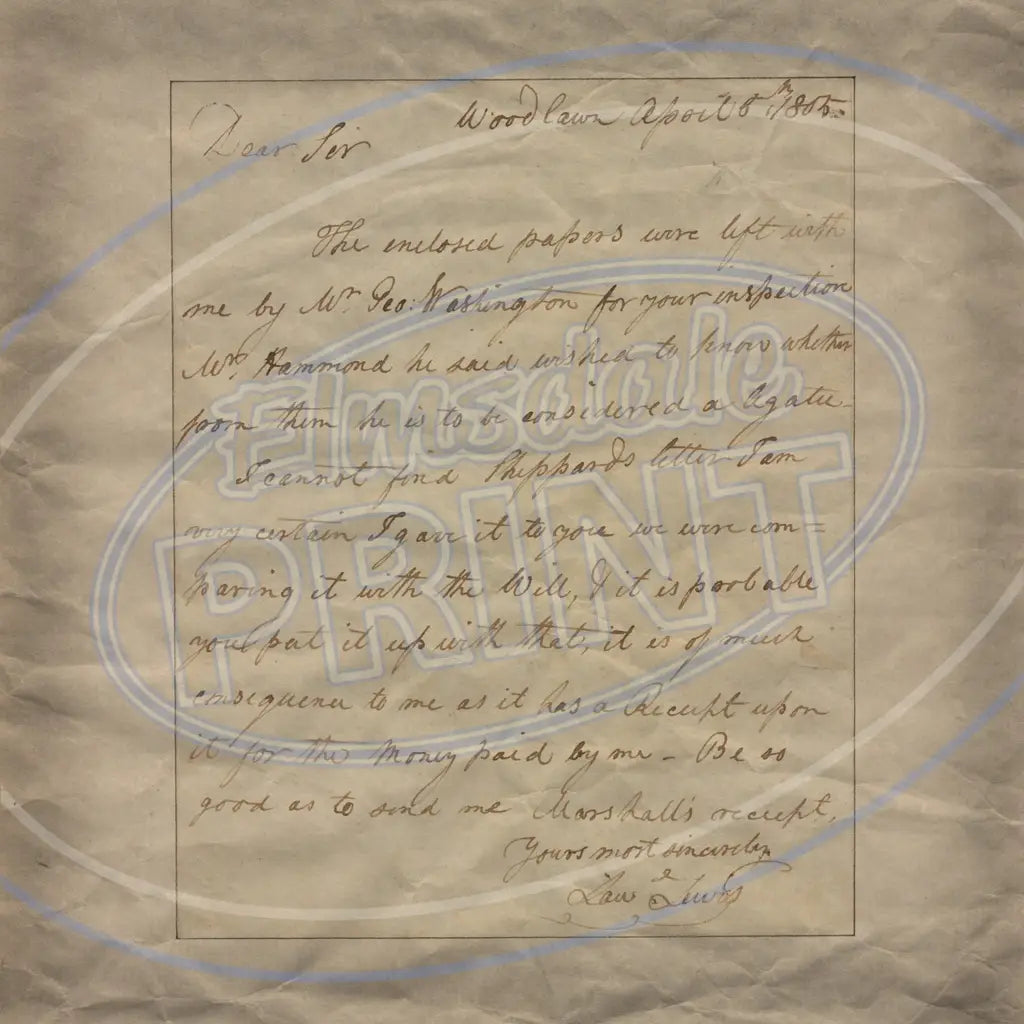 Woodlawn April 5th 1805
Dear Sir
The enclosed papers were left with
me by Mr. Geo: Washington for your inspection
Mr. Hammond he said wished to know whether
from them he is to be considered a Legatee
I cannot find Sheppards letter I am
very certain I gave it to you we were com=
paring it with the Will, & it is porbable
you put it up with that, it is of much
consequence to me as it has a Receipt upon
it for the money paid by me – Be so
good as to send me Marshall's receipt,
Yours most sincerely
Law Lewis
Elmsdale
PRINT